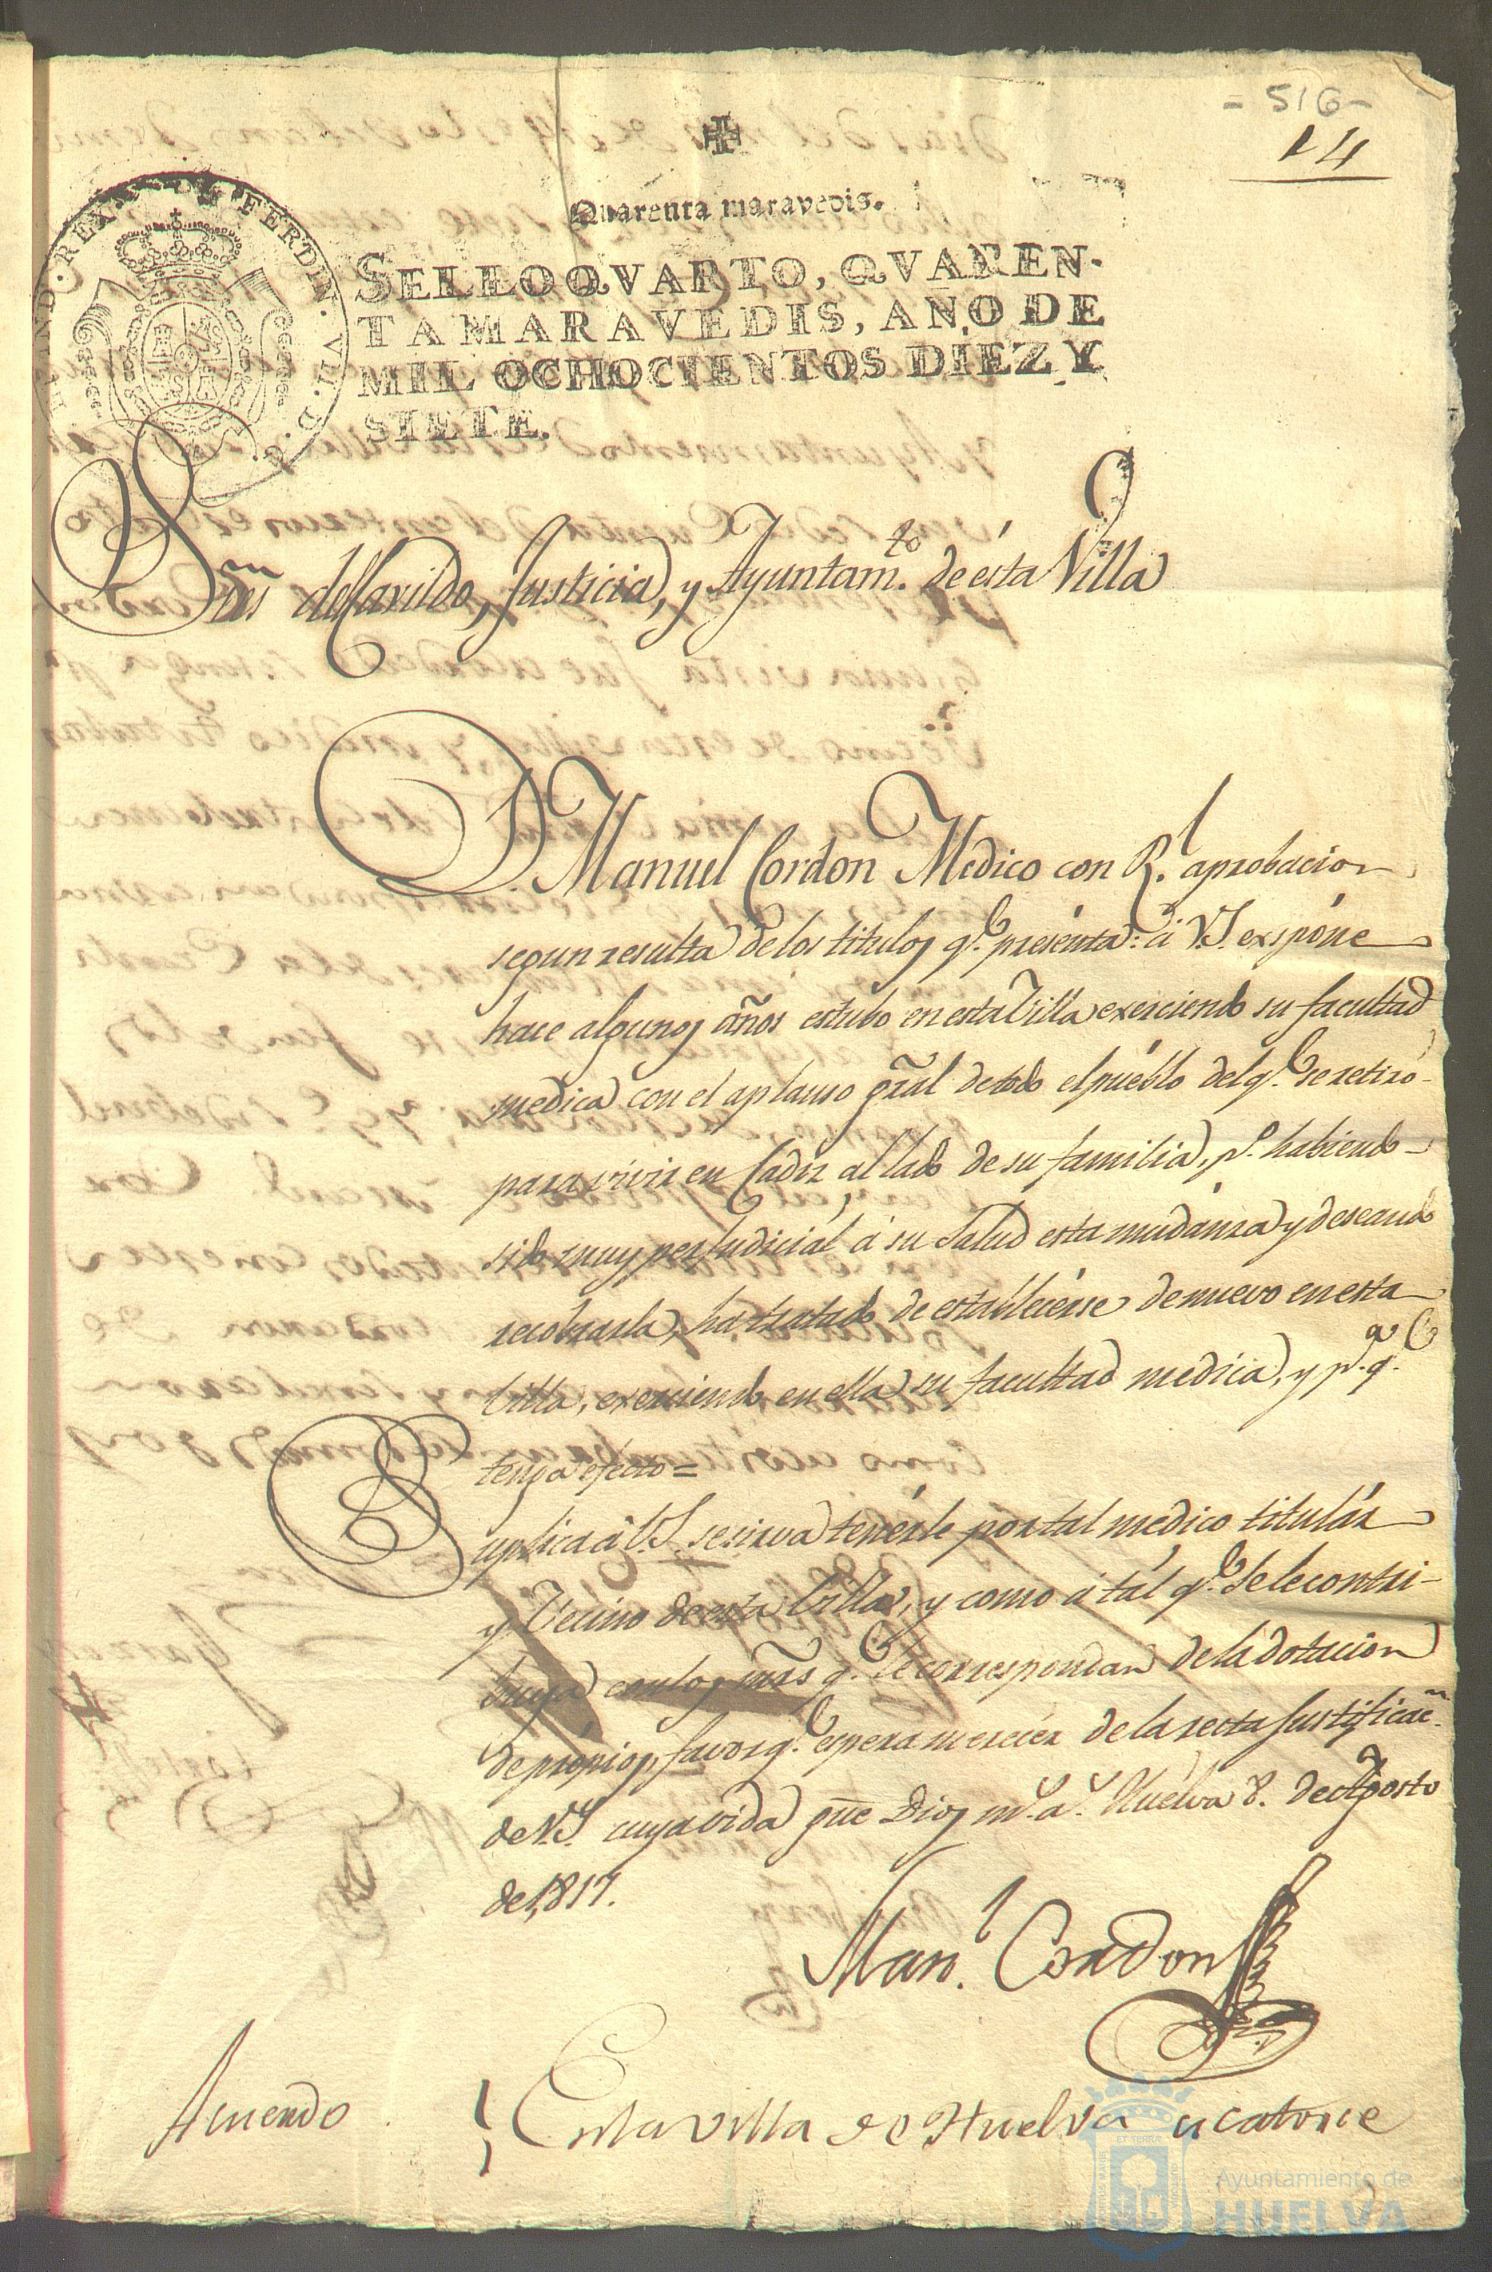 - 516 -
14
Quarenta maravedis.
SELLO QVARTO, QVAREN-
TA MARAVEDIS, AÑO DE
MIL OCHOCIENTOS DIEZ Y
SIETE.
HISPAN. ET IND. REX. FERDIN. VII. D. G.
Sres del Cavildo, Justicia, y Ayuntam.to de esta Villa
D. Manuel Cordon Medico con R.l aprobacion
segun resulta de los titulos q.e presenta: á V.S. exspóne
hace algunos años estubo en esta Villa exerciendo su facultad
medica con el aplauso grãl de todo el pueblo del q.e se retiró
para vivir en Cadiz al lado de su familia, p.o habiendo
sido muy perjudicial á su Salud esta mudanza y deseando
recobrarla, ha tratado de establecerse de nuevo en esta
Villa, exerciendo en ella su facultad medica, y p.a q.e
tenga efecto =
Suplica á V.S. se sirva tenérle por tal medico titulár
y Vecino de esta Villa, y como á tál q.e se le contri-
buya con los mrs q.e le correspondan de la dotacion
de própios, favor q.e espera merecer de la recta justificac.n
de V.S. cuya vida gue Dios m.s a.s Huelva 8. de Agosto
de 1817.
Man.l Cordon
Acuerdo
En la villa de Huelva a catorce
Ayuntamiento de
HUELVA